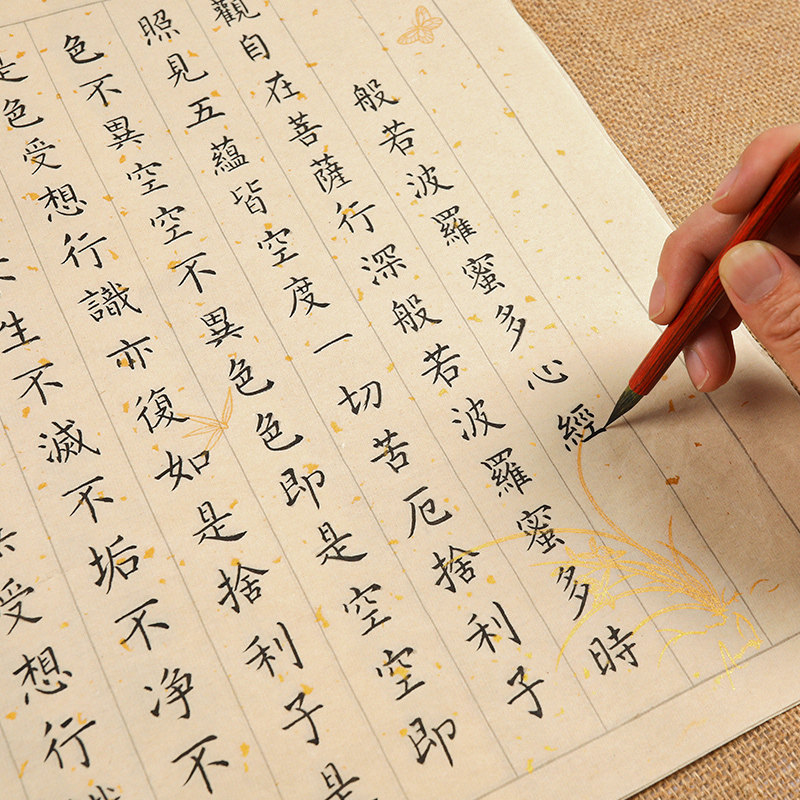 般若波羅蜜多心經
觀自在菩薩行深般若波羅蜜多時
照見五蘊皆空度一切苦厄捨利子
色不異空空不異色色即是空空即
是色受想行識亦復如是捨利子是
生不滅不垢不净不
受想行